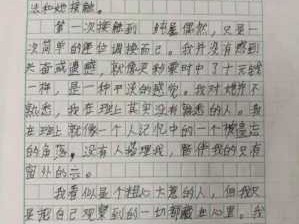 法和她接触。
第一次接触到 纯是偶然，只是一
次简单的座位调换而已。我并没有感到
失落或遗憾，就像买彩票时中了十元钱
一样，是一种平淡的感觉。我对她并不
熟悉，我在班上其实没有熟悉的人。我
在班上就像一个人记忆中的一个被遗忘
的角落。没有人搭理我，陪伴我的只有
窗外的云。
我看似是个粗心大意的人，但我只
是把自己观察到的一切都藏在心里。我